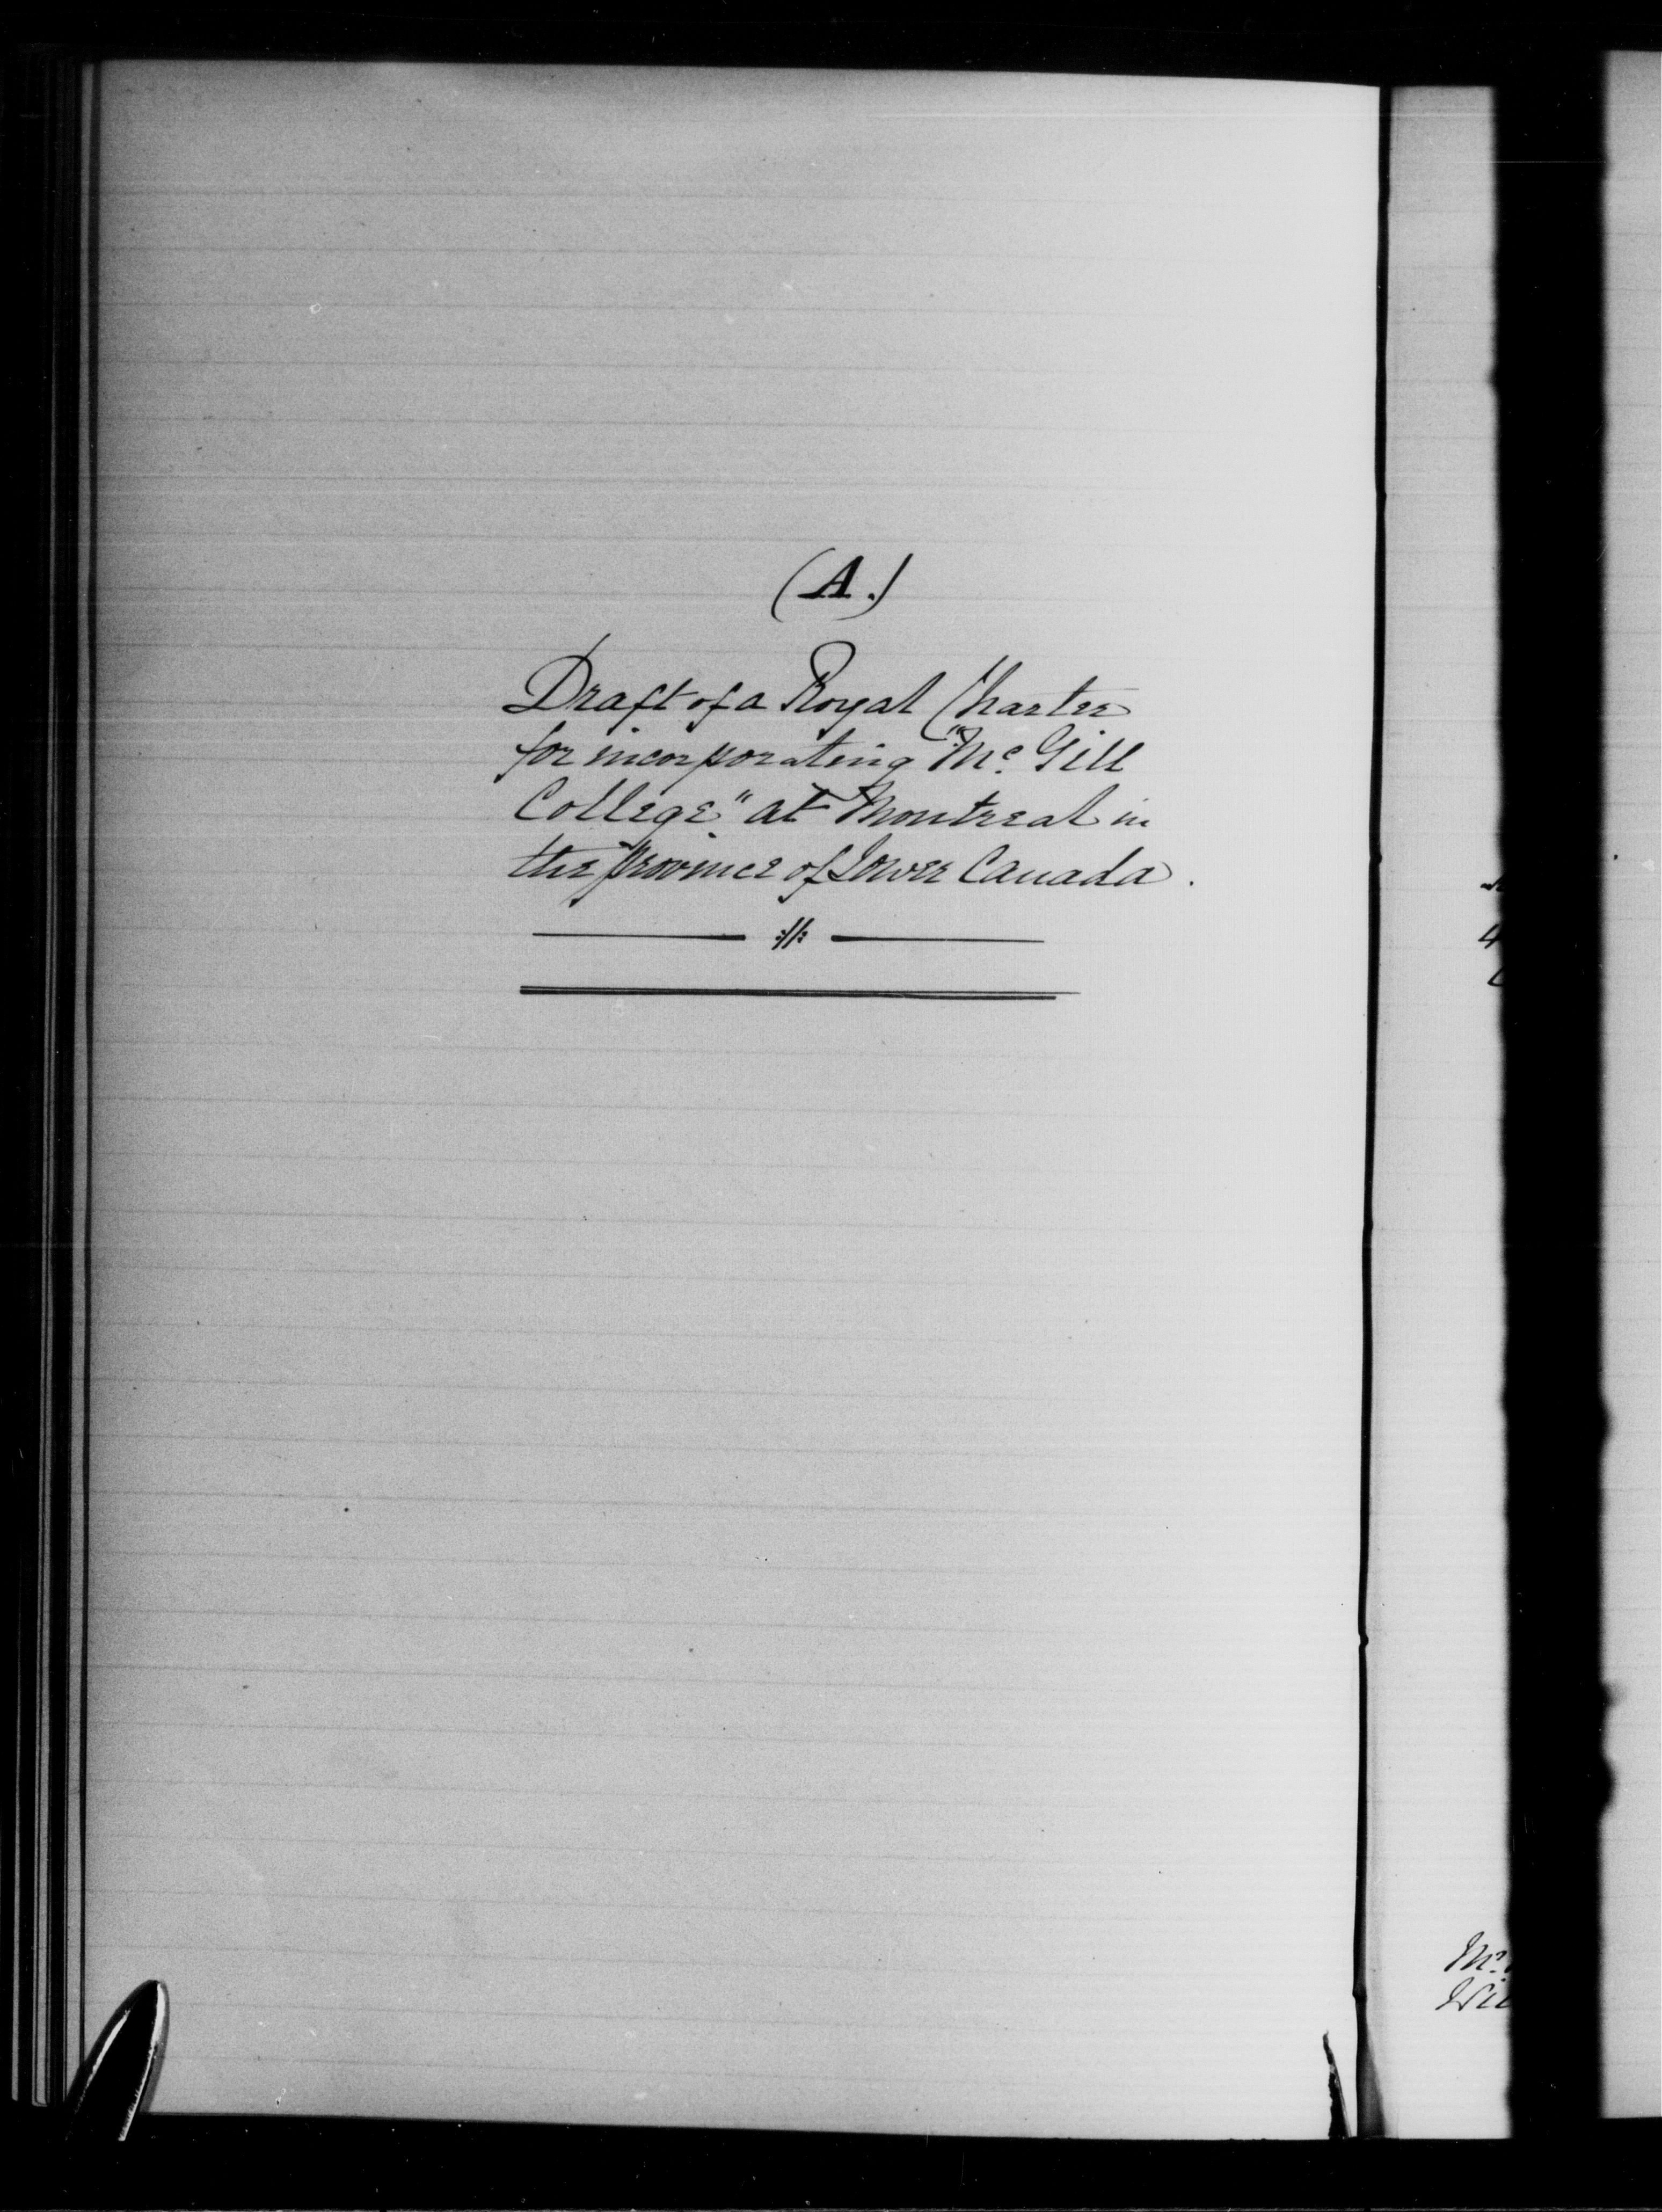 (A.)
Draft of a Royal Charter
for incorporating "Mc. Gill
College" at Montreal in
the province of Lower Canada.